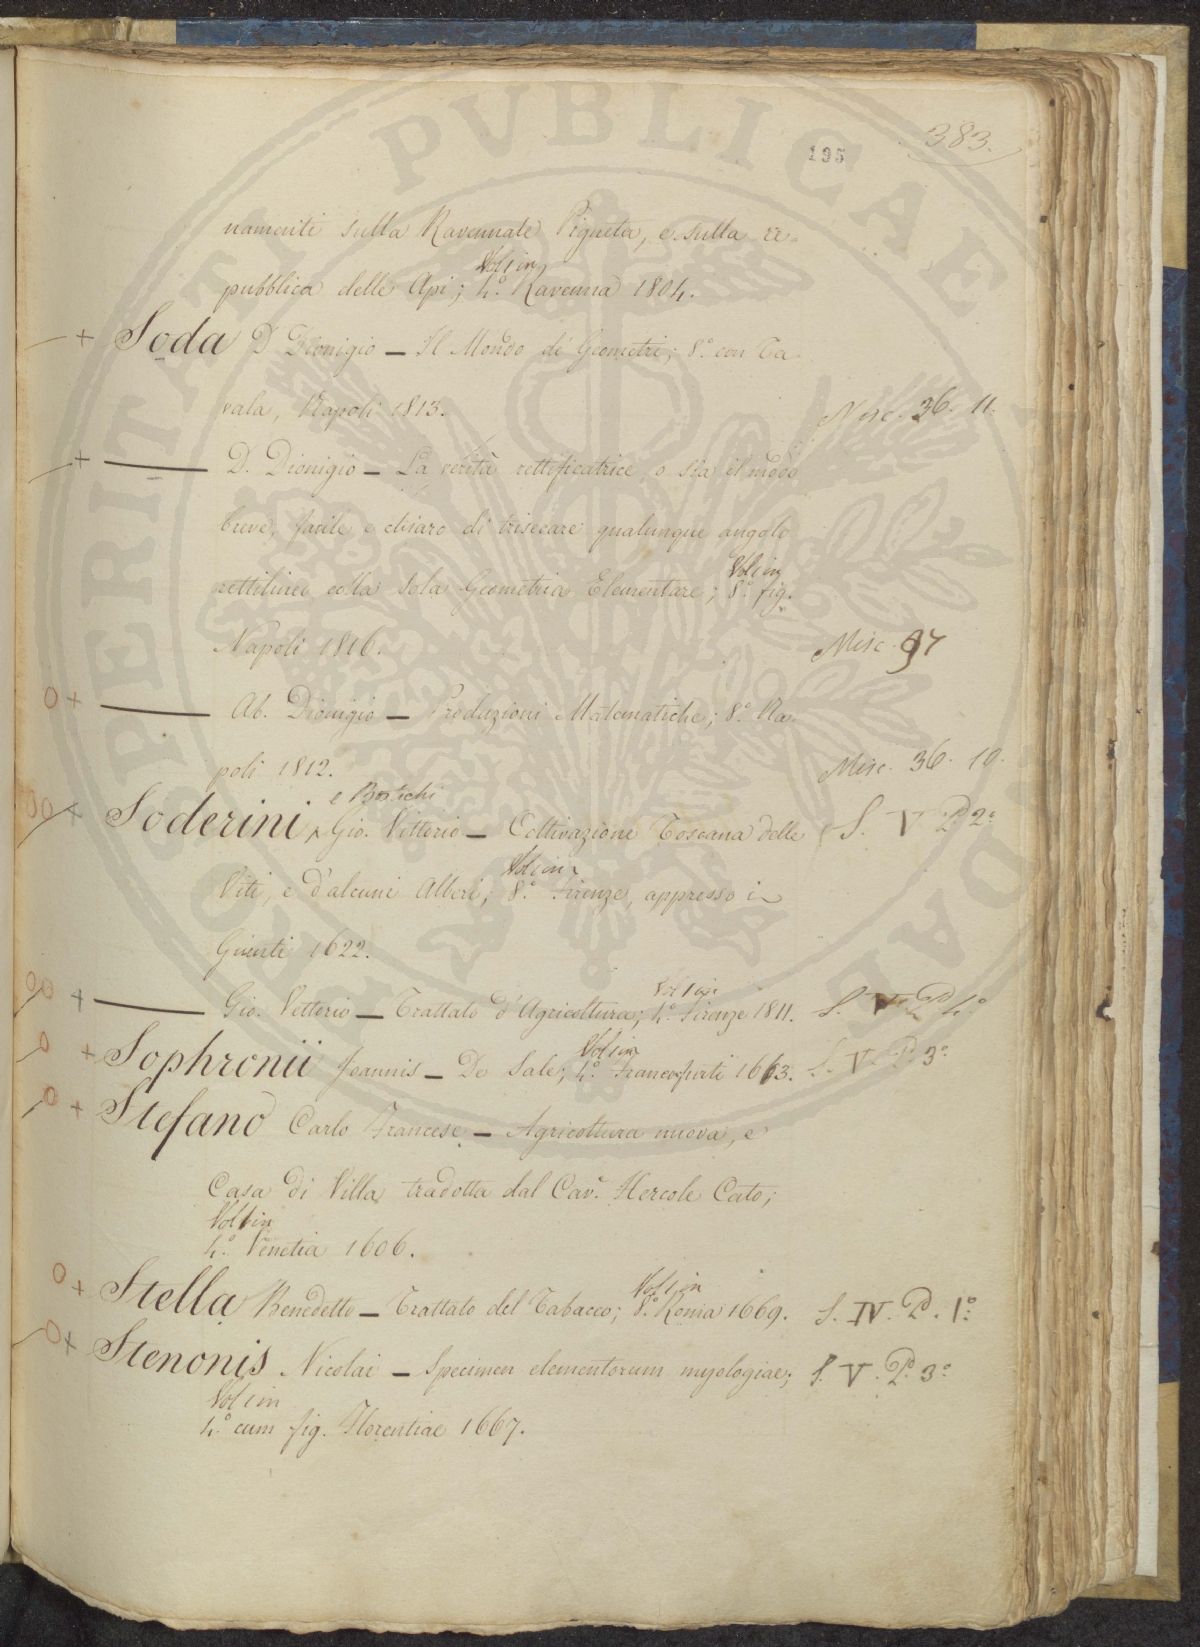 383.
195
namenti sulla Ravennate Pigneta, e sulla re=
Vol 1 in
pubblica delle Api; 4.º Ravenna 1804.
+ Soda D. Dionigio — Il Mondo de' Geometri; 8.º con Ta
vola, Napoli 1813. Misc. 36. 11.
+ —— D. Dionigio — La verità rettificatrice, o sia il modo
breve, facile e chiaro di trisecare qualunque angolo
Vol 1 in
rettilineo colla sola Geometria Elementare; 8.º fig.
Napoli 1816. Misc. 97
O + —— Ab. Dionigio — Produzioni Matematiche; 8.º Na
poli 1812. Misc. 36. 10.
e Bostichi
OO + Soderini, Gio. Vittorio — Coltivazione Toscana delle S. V P. 2º
Vol 1 in
Viti, e d'alcuni Alberi; 8.º Firenze, appresso i
Giunti 1622.
Vol 1 in
OO + —— Gio. Vettorio — Trattato d'Agricoltura; 4.º Firenze 1811. S. V. P. 4º
Vol 1 in
O + Sophronii Joannis — De Sale; 4.º Francofurti 1663. S. V. P. 3º
O + Stefano Carlo Francese — Agricoltura nuova, e
Casa di Villa tradotta dal Cav.r Hercole Cato;
Vol 1 in
4.º Venetia 1606.
Vol 1 in
O + Stella Benedetto — Trattato del Tabacco; 8.º Roma 1669. S. IV. P. 1º
O + Stenonis Nicolai — Specimen elementorum myologiae; S. V. P. 3º
Vol 1 in
4.º cum fig. Florentiae 1667.
PROSPERITATI PVBLICAE AVGENDAE